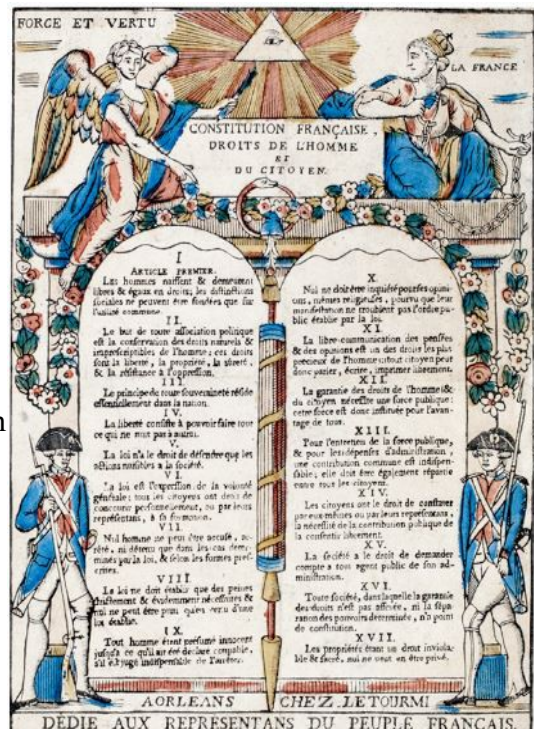 FORCE ET VERTU
LA FRANCE
CONSTITUTION FRANÇAISE,
DROITS DE L'HOMME
ET
DU CITOYEN.
I
ARTICLE PREMIER.
Les hommes naissent & demeurent
libres & égaux en droits; les distinctions
sociales ne peuvent être fondées que sur
l'utilité commune.
II.
Le but de toute association politique
est la conservation des droits naturels &
imprescriptibles de l'homme; ces droits
sont la liberté, la propriété, la sûreté,
& la résistance à l'oppression.
III.
Le principe de toute souveraineté réside
essentiellement dans la nation.
IV.
La liberté consiste à pouvoir faire tout
ce qui ne nuit pas à autrui.
V.
La loi n'a le droit de défendre que les
actions nuisibles à la société.
VI.
La loi est l'expression de la volonté
générale; tous les citoyens ont droit de
concourir personnellement, ou par leurs
représentans, à sa formation.
VII.
Nul homme ne peut être accusé, ar-
rêté, ni détenu que dans les cas déter-
minés par la loi, & selon les formes pres-
crites.
VIII.
La loi ne doit établir que des peines
strictement & évidemment nécessaires &
nul ne peut être puni qu'en vertu d'une
loi établie.
IX.
Tout homme étant présumé innocent
jusqu'à ce qu'il ait été déclaré coupable,
s'il est jugé indispensable de l'arrêter.
X.
Nul ne doit être inquiété pour ses opini-
ons, mêmes religieuses, pourvu que leur
manifestation ne troublent pas l'ordre pu-
blic établie par la loi.
XI.
La libre communication des pensées
& des opinions est un des droits les plus
précieux de l'homme: tout citoyen peut
donc parler, écrire, imprimer librement.
XII.
La garantie des droits de l'homme &
du citoyen nécessite une force publique:
cette force est donc instituée pour l'avan-
tage de tous.
XIII.
Pour l'entretien de la force publique,
& pour les dépenses d'administration,
une contribution commune est indispen-
sable; elle doit être également répartie
entre tout les citoyens.
XIV.
Les citoyens ont le droit de constater
par eux mêmes ou par leurs représentans,
la nécessité de la contribution publique de
la consentir librement.
XV.
La société a le droit de demander
compte a tout agent public de son ad-
ministration.
XVI.
Toute société, dans laquelle la garantie
des droits n'est pas assurée, ni la sépa-
ration des pouvoirs déterminée, n'a point
de constitution.
XVII.
Les propriétés étant un droit inviola-
ble & sacré, nul ne peut en être privé.
A ORLEANS CHEZ LETOURMI
DÉDIÉ AUX REPRÉSENTANS DU PEUPLE FRANÇAIS.